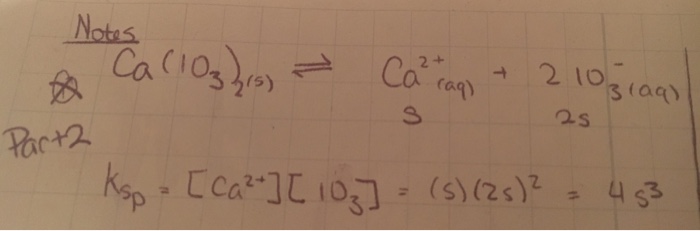 Notes
Ca(IO₃)₂(s) ⇌ Ca²⁺(aq) + 2 IO₃⁻(aq)
s 2s
Part 2
Ksp = [Ca²⁺][IO₃] = (s)(2s)² = 4s³